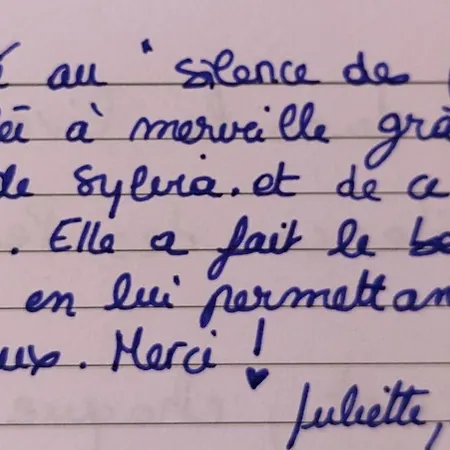 au "silence des
à merveille
de Sylvia. et de ce
. Elle a fait le
en lui permettan
ux. Merci !
Juliette,